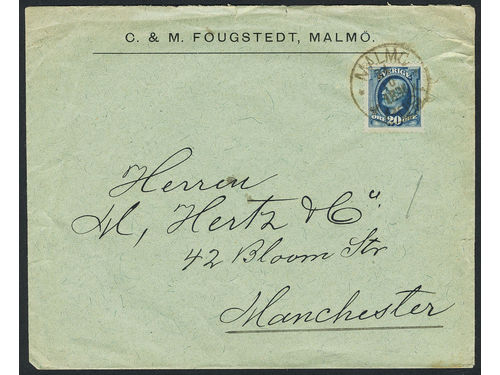 C. & M. FOUGSTEDT, MALMÖ.
MALMÖ
SVERIGE
ÖRE 20 ÖRE
Herren
M, Hertz & Cº
42 Bloom Str
Manchester